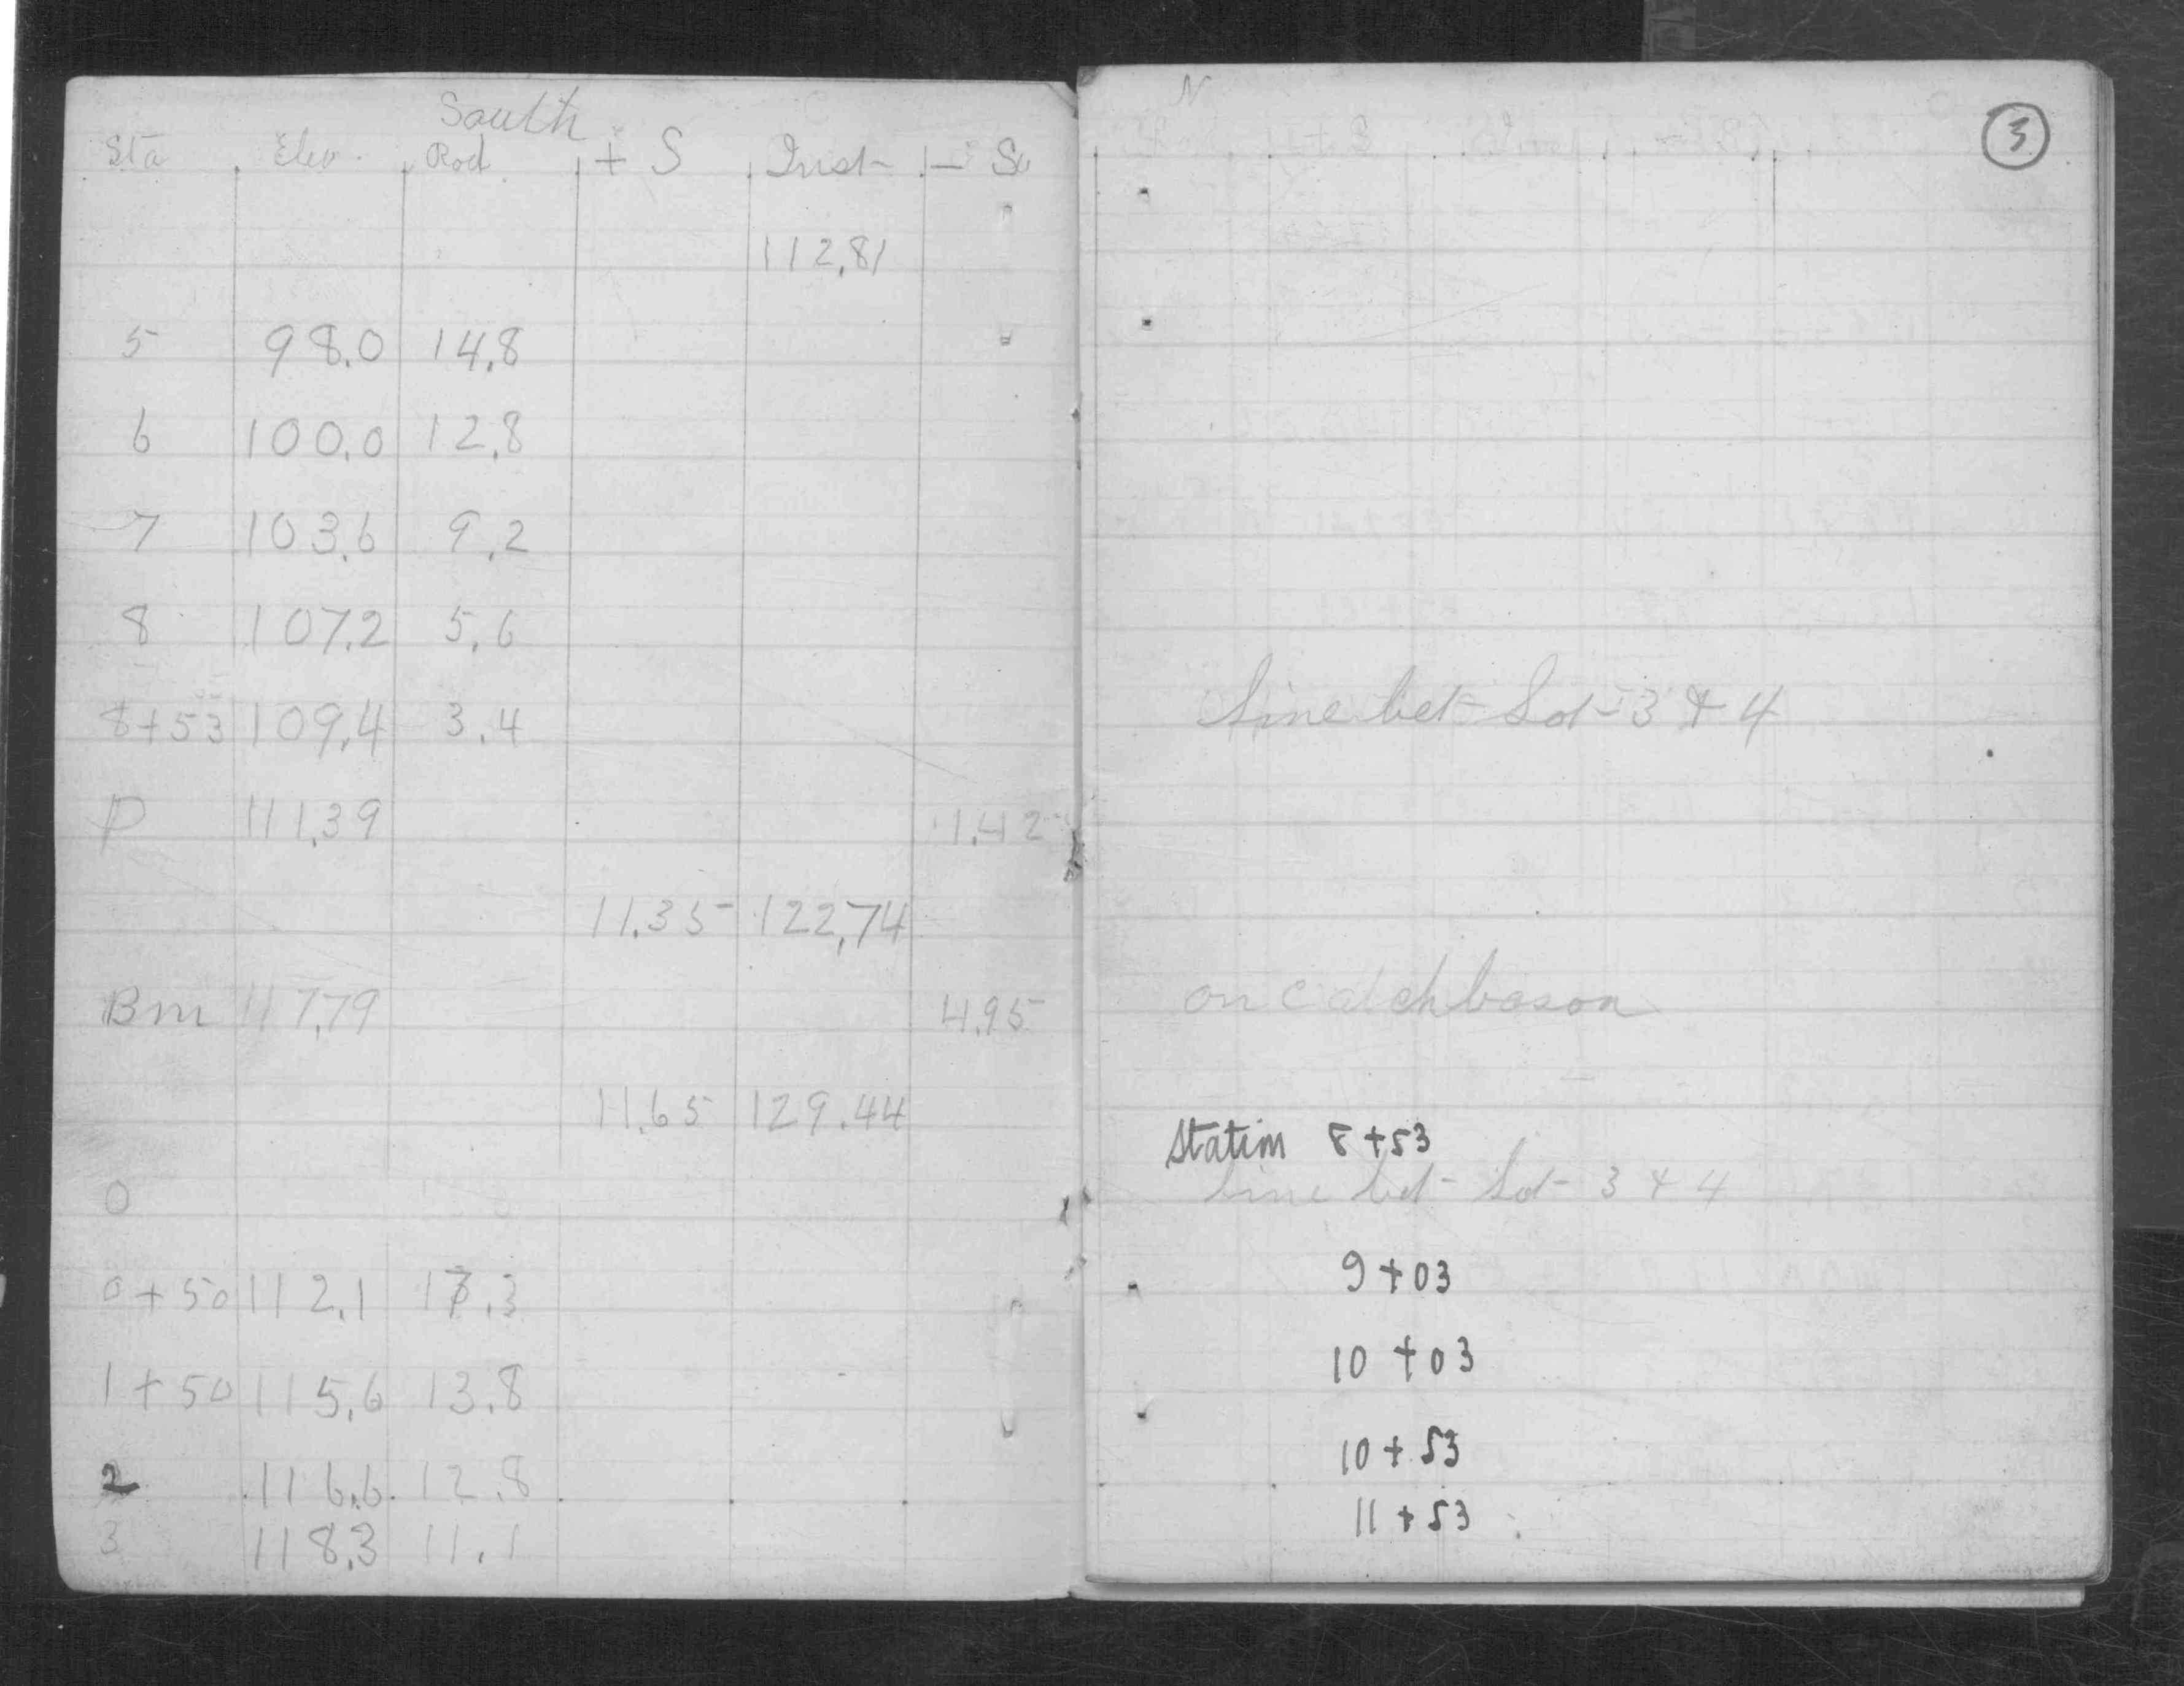 South
Sta Elev. Rod + S Inst - S
112.81
5 98.0 14.8
6 100.0 12.8
7 103.6 9.2
8 107.2 5.6
8+53 109.4 3.4
P 111.39 1.42
11.35 122.74
Bm 117.79 4.95
11.65 129.44
0
0+50 112.1 17.3
1+50 115.6 13.8
2 116.6 12.8
3 118.3 11.1
N
3
Line bet Lot 3 & 4
on catchbason
Station 8+53
Line bet- Lot- 3 & 4
9+03
10+03
10+53
11+53